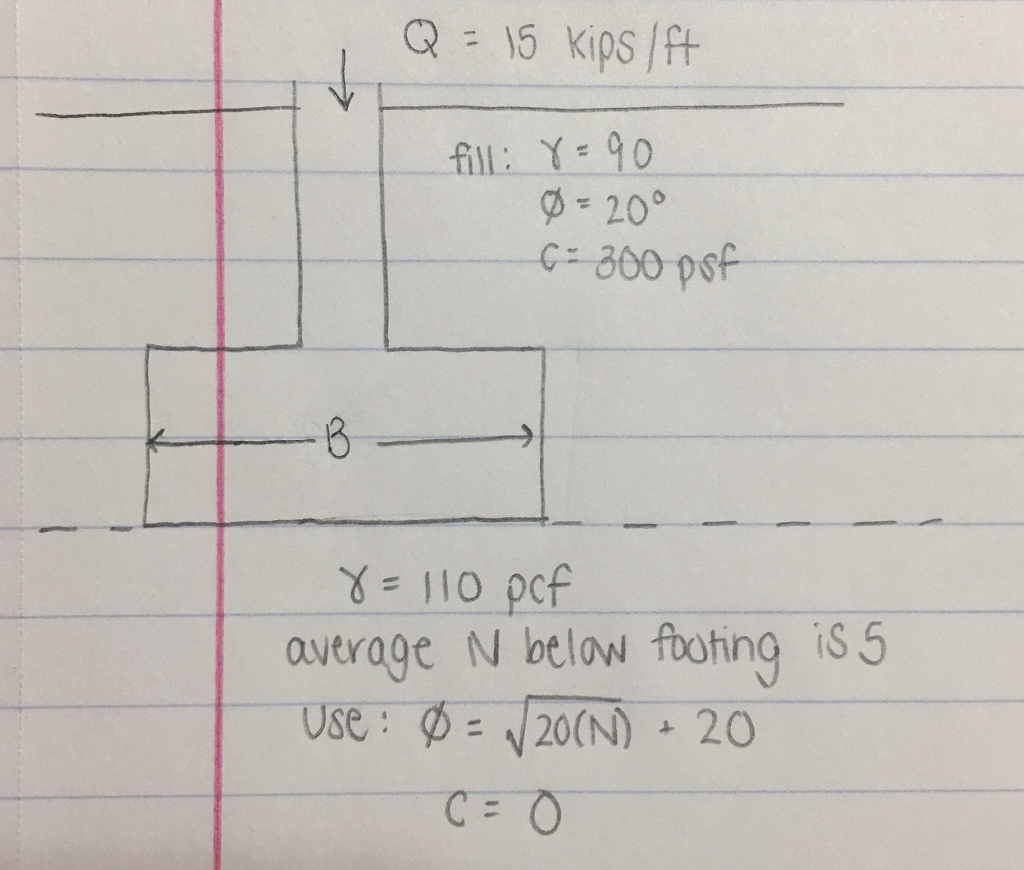 Q = 15 kips/ft
fill: γ = 90
Ø = 20°
C = 300 psf
B
γ = 110 pcf
average N below footing is 5
Use: Ø = √20(N) + 20
C = 0